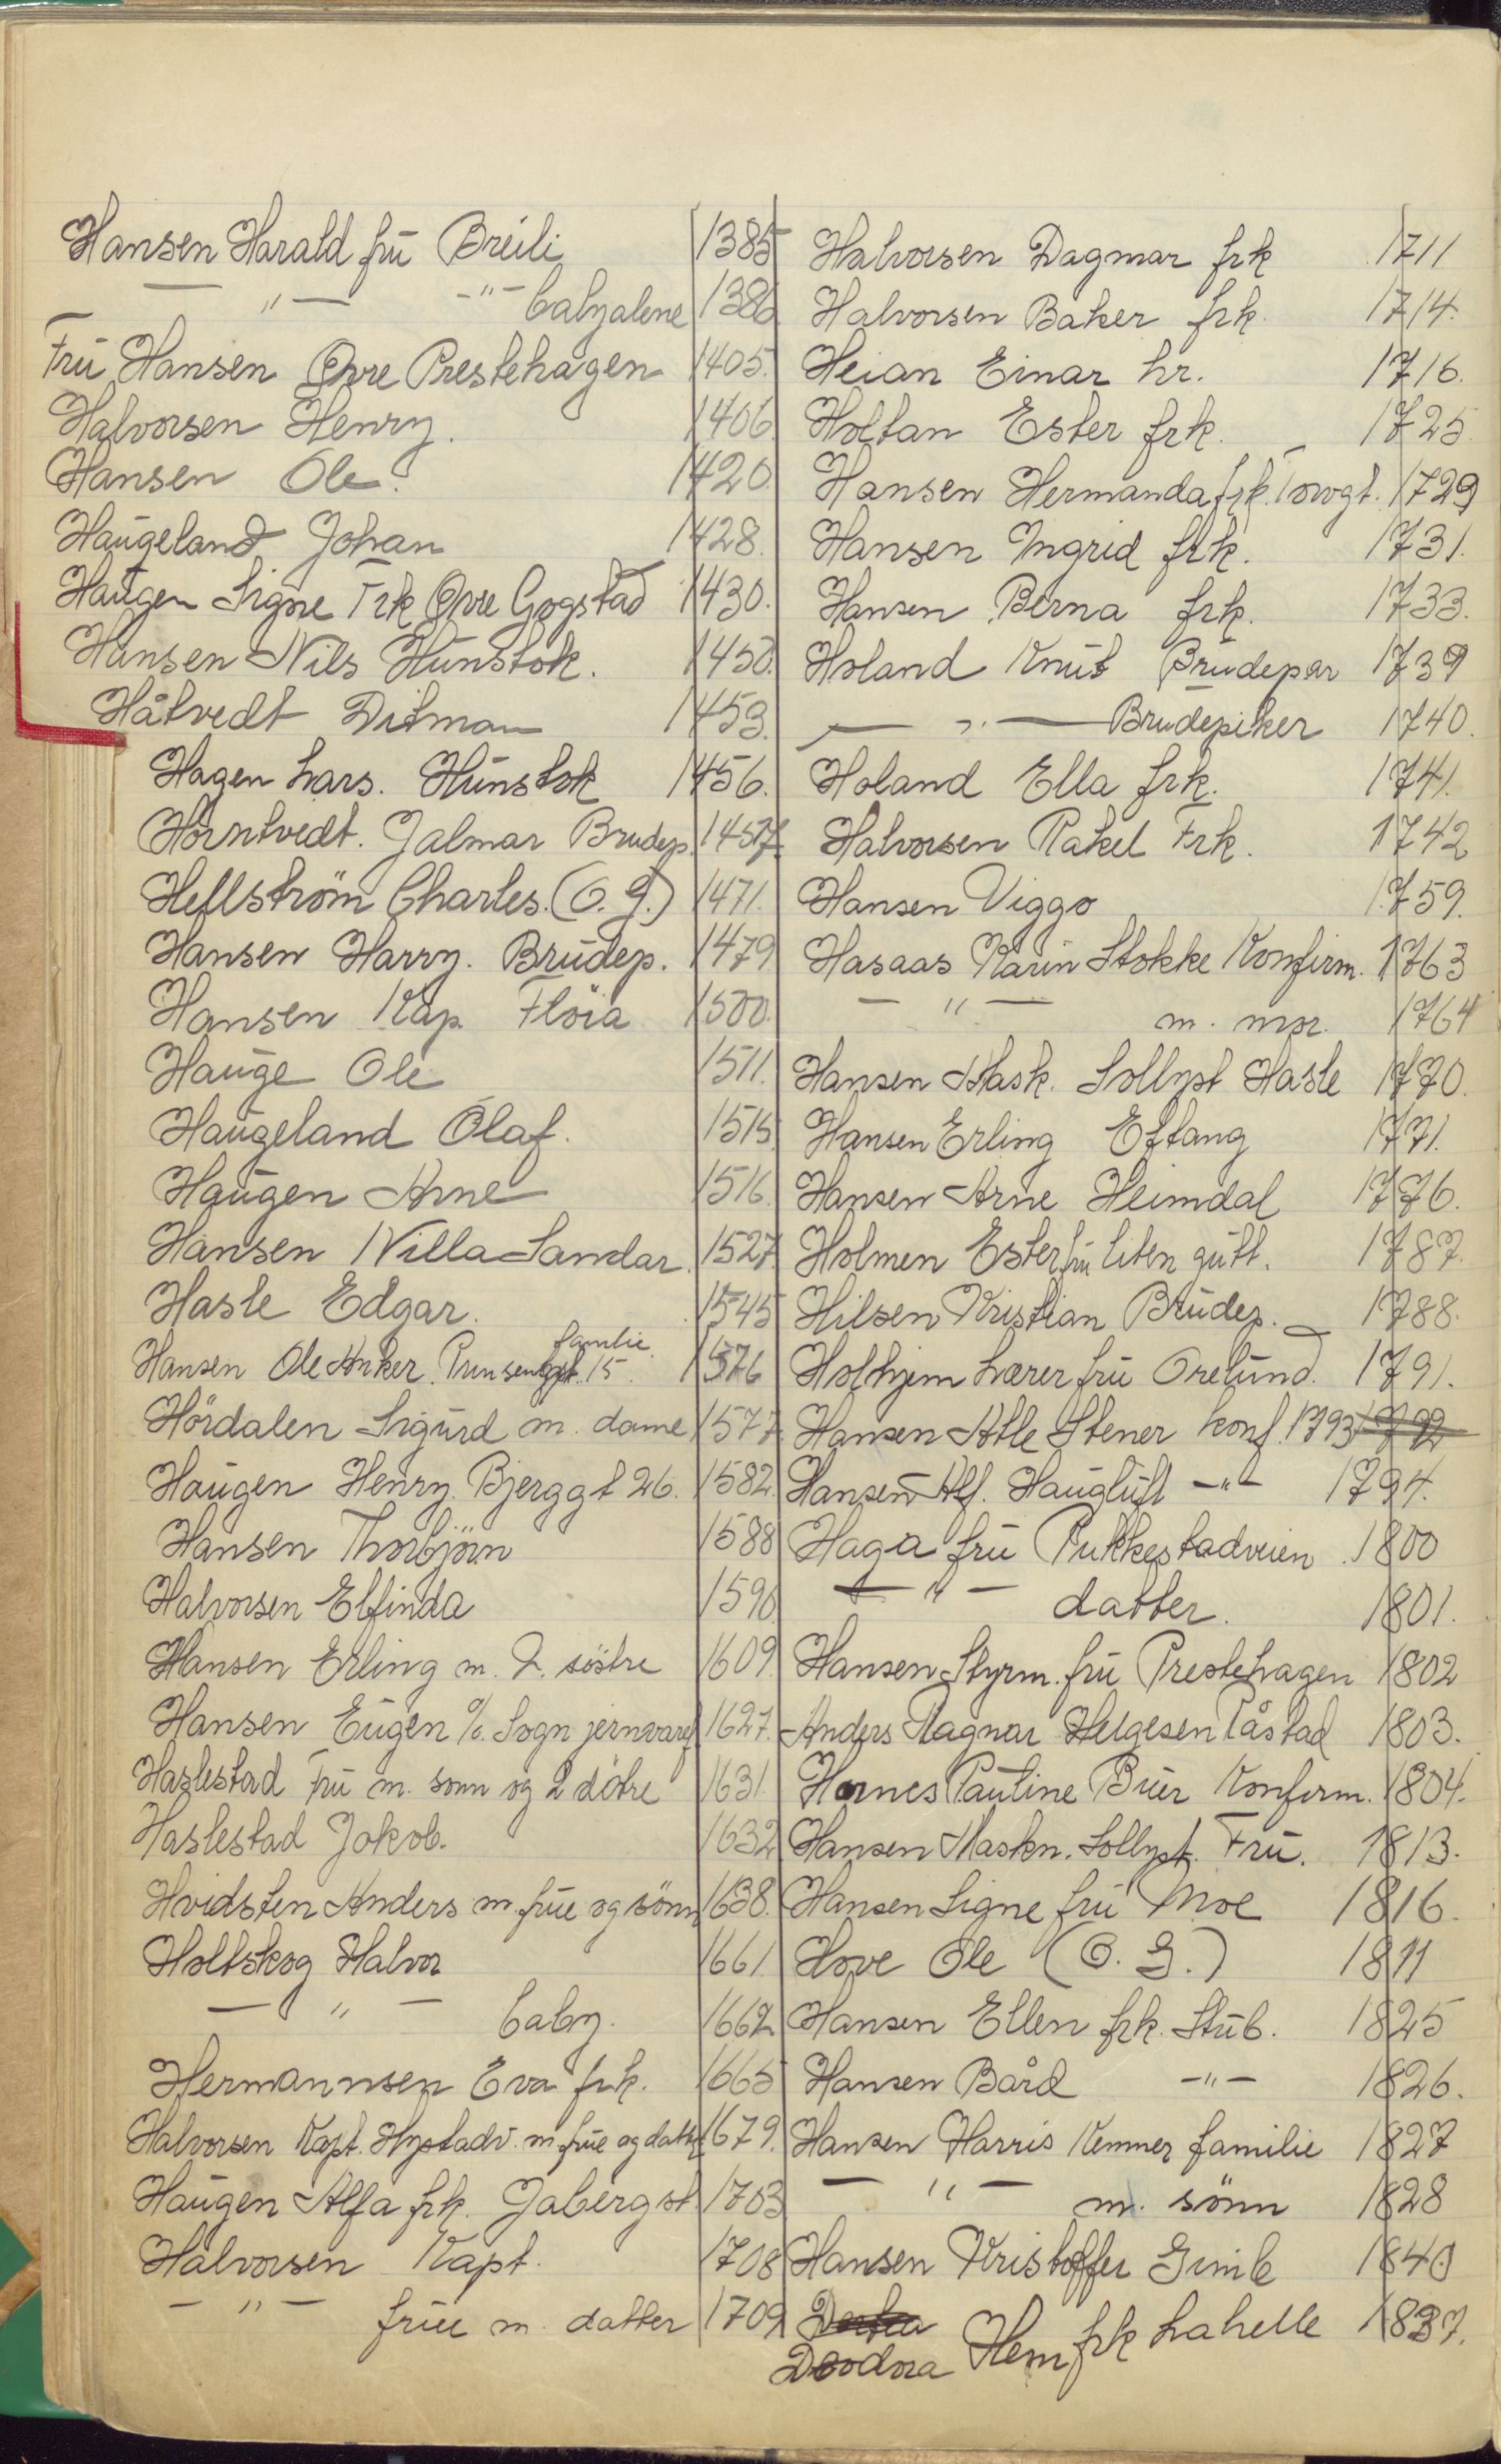 Hansen Harald frū Breili 1385
— " — -"- babyalene 1386
Frū Hansen Øvre Prestehagen 1405.
Halvorsen Henry. 1406.
Hansen Ole. 1420.
Haūgeland Johan 1428.
Haūgen Signe Frk Øvre Gogstad 1430.
Hansen Nils Hūnstok. 1450.
Håtvedt Ditman 1453.
Hagen Lars. Hūnstok 1456.
Hörntvedt. Jalmar Brudep. 1457.
Hellström Charles. (O. G.) 1471.
Hansen Harry. Brūdep. 1479
Hansen Kap. Flöia 1500.
Haūge Ole 1511.
Haūgeland Olaf. 1515.
Haūgen Arne 1516.
Hansen Willa Sandar. 1527.
Hasle Edgar. 1545
Hansen Ole Anker. Prinsensgt. 15. familie. 1576
Hördalen Sigūrd m. dame 1577.
Haūgen Henry. Bjerggt 26. 1582.
Hansen Thorbjörn 1588
Halvorsen Elfinda 1590.
Hansen Erling m. 2. söstre 1609.
Hansen Eūgen %. Sogn jernvaref 1627.
Haslestad Frū m. sonn og 2 dötre 1631.
Haslestad Jakob. 1632
Hvidsten Anders m. frūe og sönn 1638.
Holtskog Halvor 1661.
— " — baby. 1662
Hermannsen Eva frk. 1665
Halvorsen Kapt. Hystadv. m. frūe og datter 1679.
Haūgen Alfa frk. Jabergst. 1703
Halvorsen Kapt. 1708
— " — frūe m. datter 1709
Halvorsen Dagmar frk 1711
Halvorsen Baker frk. 1714.
Heian Einar hr. 1716.
Holtan Ester frk. 1725.
Hansen Hermanda frk. Torvgt. 1729
Hansen Ingrid frk. 1731.
Hansen Berna frk. 1733.
Holand Knūt Brūdepar 1739
— " — Brudepiker 1740.
Holand Ella frk. 1741.
Halvorsen Rakel Frk. 1742
Hansen Viggo 1759.
Hasaas Karin Stokke Konfirm. 1763
— " — m. mor. 1764
Hansen Mask. Sollyst Hasle 1770.
Hansen Erling Eftang 1771.
Hansen Arne Heimdal 1776.
Holmen Ester frū liten gūtt. 1787.
Hilsen Kristian Brūdep. 1788.
Holthjem Lærer frū Orelūnd. 1791.
Hansen Atle Stener konf. 1793 1792
Hansen Alf. Haūglūft -"- 1794.
Haga frū Pūkkestadveien. 1800
— " — datter. 1801.
Hansen Styrm. frū Prestehagen 1802
Anders Ragnar Helgesen Råstad 1803.
Hornes Paūline Būer Konfirm. 1804.
Hansen Maskn. Sollyst. Frū. 1813.
Hansen Signe frū Moe 1816.
Hove Ole (O. G.) 1811
Hansen Ellen frk. Stūb. 1825
Hansen Bård -"- 1826.
Hansen Harris Kemner familie 1827
— " — m. sönn 1828
Hansen Kristoffer Gimle 1840
Deodora Hem frk Lahelle 1837.